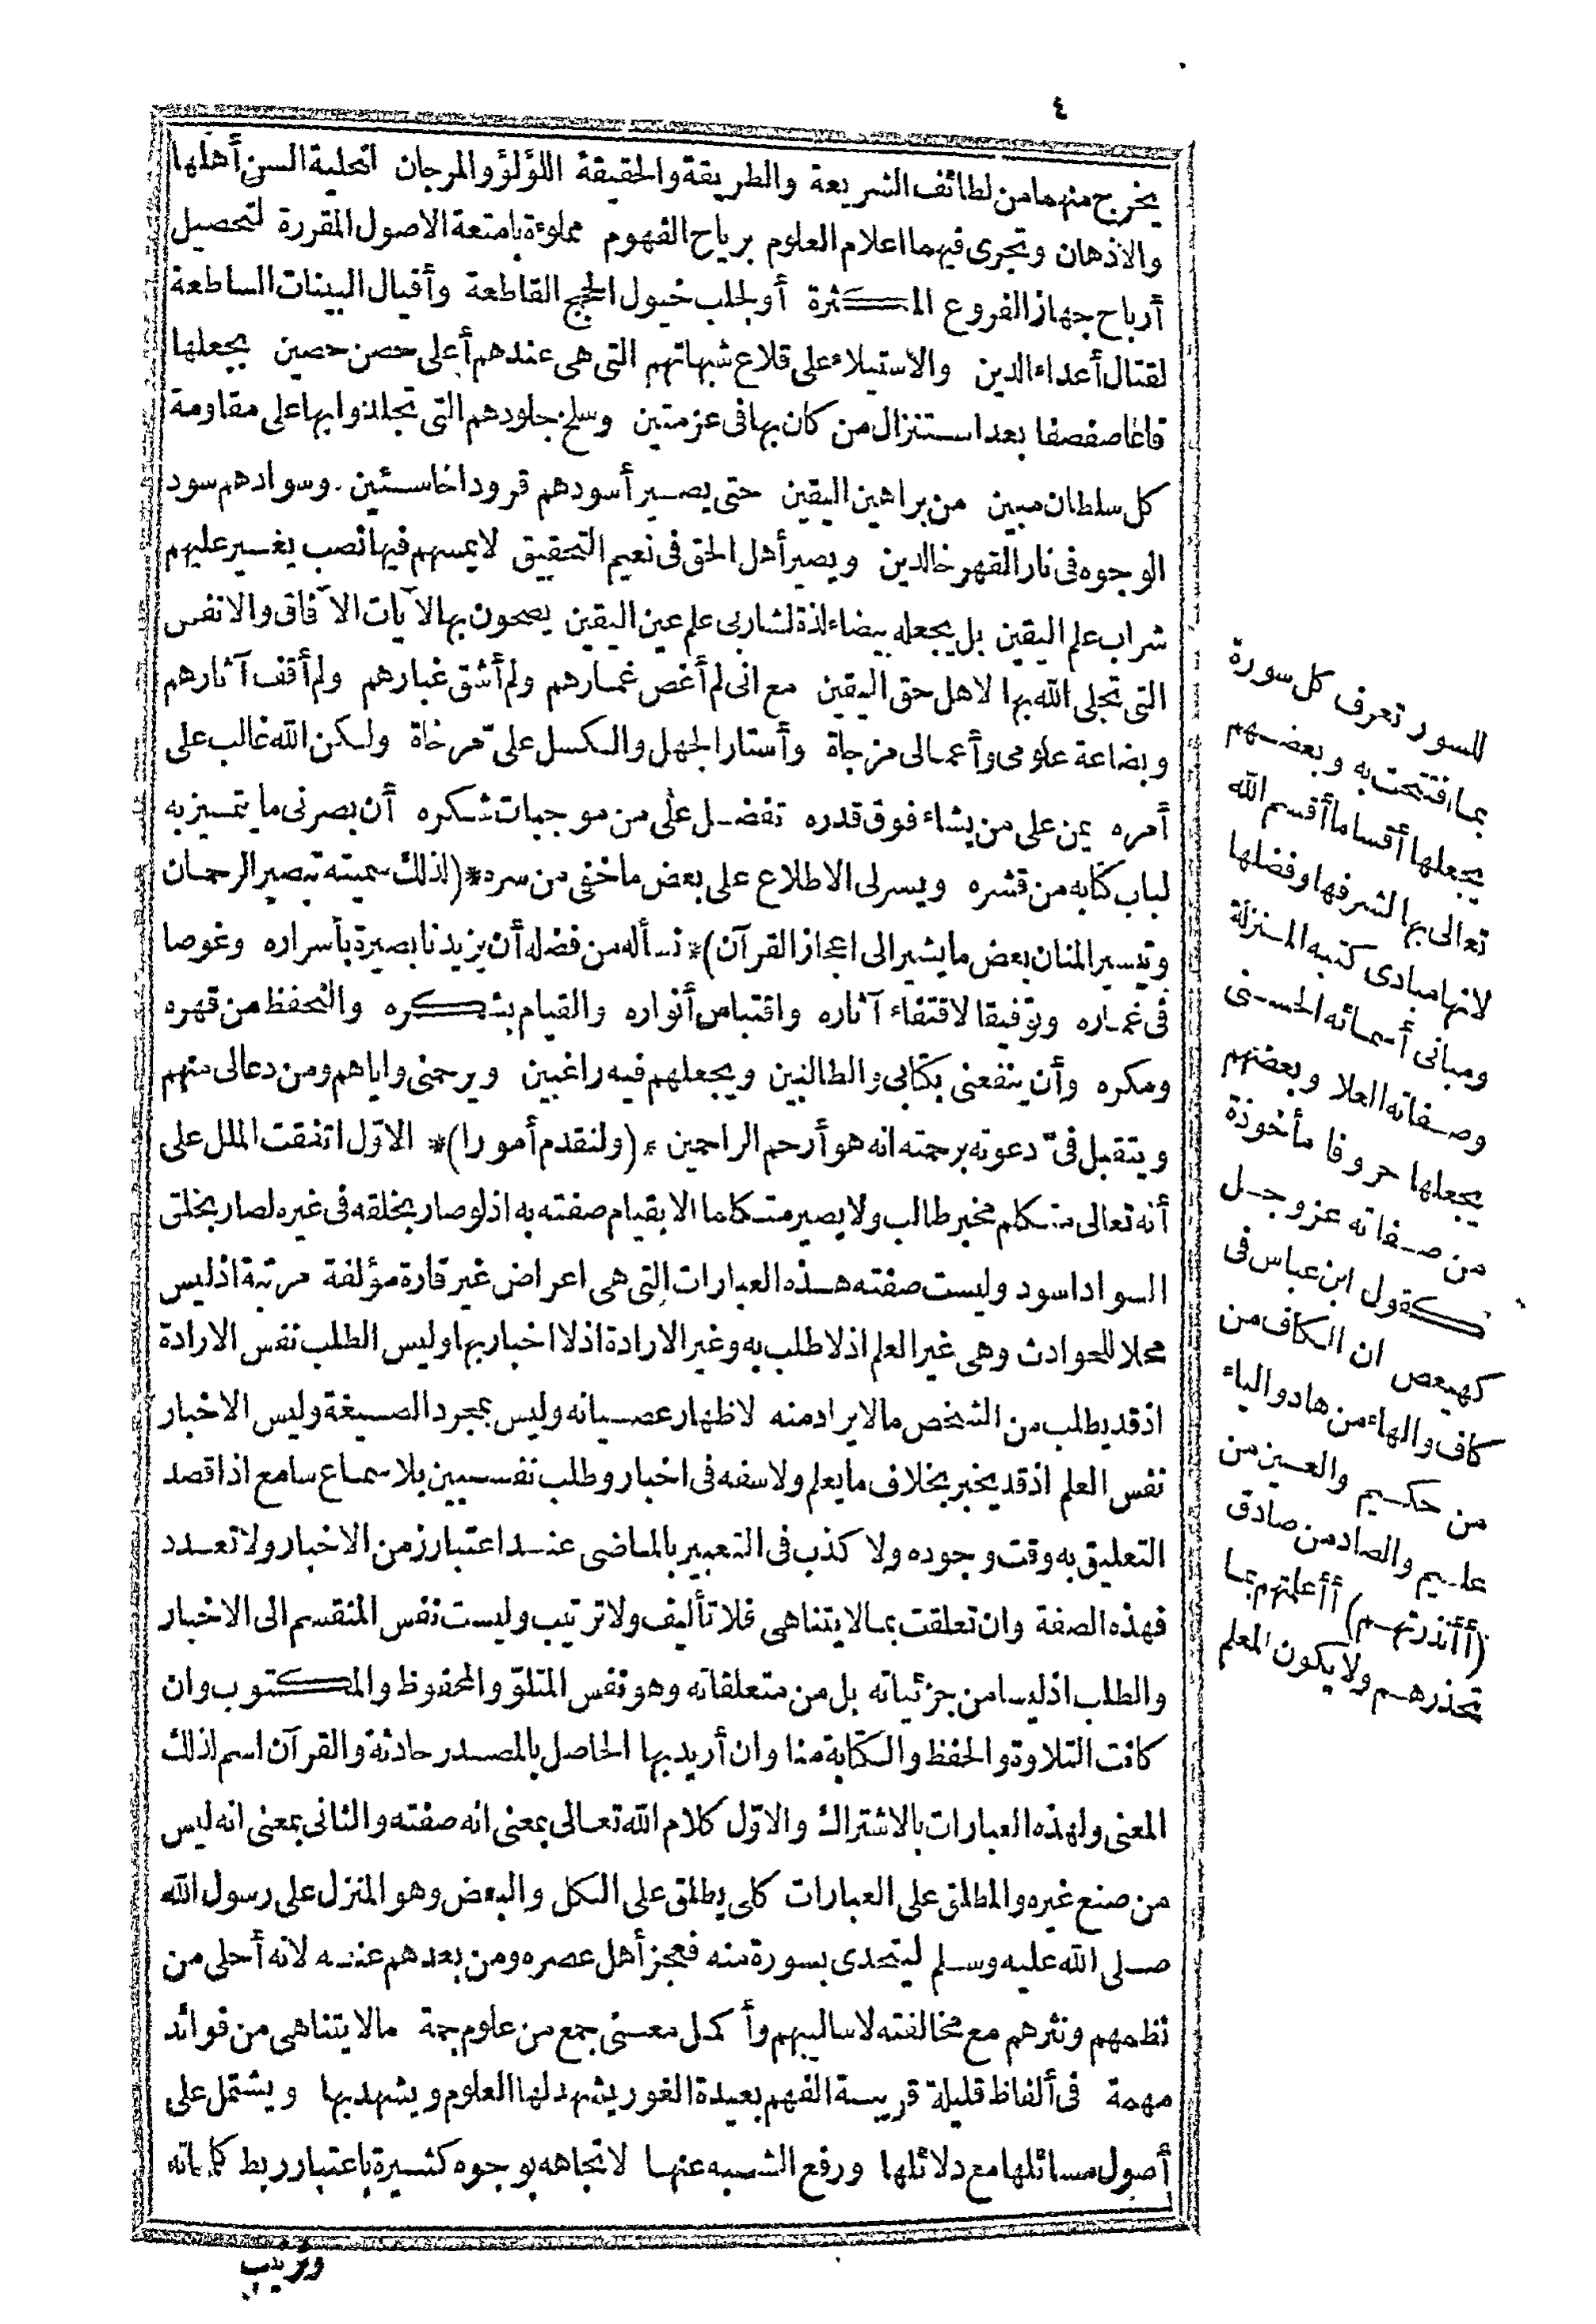 ٤
يخرج منهما من لطائف الشريعة والطريقة والحقيقة اللؤلؤ والمرجان لتحلية السن أهلها
والاذهان وتجرى فيهما اعلام العلوم برياح الفهوم مملوءة بامتعة الاصول المقررة لتحصيل
أرباح جهاز الفروع المكثرة أو لجلب خيول الحجج القاطعة وأفيال البينات الساطعة
لقتال أعداء الدين والاستيلاء على قلاع شبهاتهم التى هى عندهم أعلى حصن حصين يجعلها
قاعا صفصفا بعد استنزال من كان بها فى عز متين وسلخ جلودهم التى تجلدوا بها على مقاومة
كل سلطان مبين من براهين اليقين حتى يصير أسودهم قرودا خاسئين . وسوادهم سود
الوجوه فى نار القهر خالدين ويصير أهل الحق فى نعيم التحقيق لا يمسهم فيها نصب يغير عليهم
شراب علم اليقين بل يجعله بيضاء لذة لشاربى علم عين اليقين يصحون بها لآيات الآفاق والانفس
التى تجلى الله بها لاهل حق اليقين مع انى لم أغص غمارهم ولم أشق غبارهم ولم أقف آثارهم
وبضاعة علومى وأعمالى مزجاة وأستار الجهل والكسل علىّ مرخاة ولكن الله غالب على
أمره يمن على من يشاء فوق قدره تفضل علىّ من موجبات شكره أن بصرنى ما يتميز به
لباب كتابه من قشره ويسر لى الاطلاع على بعض ما خفى من سره *(لذلك سميته تبصير الرحمان
وتيسير المنان بعض ما يشير الى اعجاز القرآن)* نسأله من فضله أن يزيدنا بصيرة بأسراره وغوصا
فى غماره وتوفيقا لاقتفاء آثاره واقتباس أنواره والقيام بشكره والتحفظ من قهره
ومكره وأن ينفعنى بكتابى والطالبين ويجعلهم فيه راغبين ويرحمنى واياهم ومن دعا لى منهم
ويتقبل فىّ دعوته برحمته انه هو أرحم الراحمين *(ولنقدم أمورا)* الاوّل اتفقت الملل على
أنه تعالى متكلم مخبر طالب ولا يصير متكلما الا بقيام صفته به اذ لو صار بخلقه فى غيره لصار بخلق
السواد اسود وليست صفته هذه العبارات التى هى اعراض غير قارة مؤلفة مرتبة اذ ليس
محلا للحوادث وهى غير العلم اذ لا طلب به وغير الارادة اذ لا اخبار بها وليس الطلب نفس الارادة
اذ قد يطلب من الشخص ما لا يراد منه لاظهار عصيانه وليس بمجرد الصيغة وليس الاخبار
نفس العلم اذ قد يخبر بخلاف ما يعلم ولا سفه فى اخبار وطلب نفسيين بلا سماع سامع اذا قصد
التعليق به وقت وجوده ولا كذب فى التعبير بالماضى عند اعتبار زمن الاخبار ولا تعدد
فهذه الصفة وان تعلقت بما لا يتناهى فلا تأليف ولا ترتيب وليست نفس المنقسم الى الاخبار
والطلب اذ ليسا من جزئياته بل من متعلقاته وهو نفس المتلوّ والمحفوظ والمكتوب وان
كانت التلاوة والحفظ والكتابة منا وان أريد بها الحاصل بالمصدر حادثة والقرآن اسم لذلك
المعنى ولهذه العبارات بالاشتراك والاوّل كلام الله تعالى بمعنى انه صفته والثانى بمعنى انه ليس
من صنع غيره والمطلق على العبارات كلى يطلق على الكل والبعض وهو المنزل على رسول الله
صلى الله عليه وسلم ليتحدى بسورة منه فعجز أهل عصره ومن بعدهم عنه لانه أحلى من
نظمهم ونثرهم مع مخالفته لاساليبهم وأكمل معنى جمع من علوم جمة ما لا يتناهى من فوائد
مهمة فى ألفاظ قليلة قريبة الفهم بعيدة الغور يشهد لها العلوم ويشهد بها ويشتمل على
أصول مسائلها مع دلائلها ورفع الشبه عنها لاتجاهه بوجوه كثيرة باعتبار ربط كلماته
وترتيب
للسور تعرف كل سورة
بما افتتحت به وبعضهم
يجعلها أقساما أقسم الله
تعالى بها لشرفها وفضلها
لانها مبادى كتبه المنزلة
ومبانى أسمائه الحسنى
وصفاته العلا وبعضهم
يجعلها حروفا مأخوذة
من صفاته عز وجل
كقول ابن عباس فى
كهيعص ان الكاف من
كاف والهاء من هاد والياء
من حكيم والعين من
عليم والصاد من صادق
(أأنذرتهم) أأعلمتهم بما
تحذرهم ولا يكون المعلم